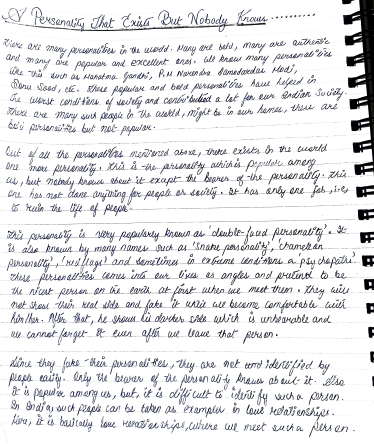 A Personality That Exists But Nobody Knows...........
There are many personalities in the world. Many are bold, many are authentic
and many are popular and excellent ones. We know many personalities
like this such as Mahatma Gandhi, P.M Narendra Damodardas Modi,
Sonu Sood, etc. These popular and bold personalities have helped in
the worst conditions of society and contributed a lot for our Indian Society.
There are many such people in the world, might be in our homes, these are
bold personalities but not popular.
Out of all the personalities mentioned above, there exists in the world
one more personality. This is the personality which is popular among
us, but nobody knows about it except the bearer of the personality. This
one has not done anything for people or society. It has only one for, i.e,
to ruin the life of people.
This personality is very popularly known as 'double-faced personality'. It
is also known by many names such as 'snake personality', 'chameleon
personality', 'red flags' and sometimes in extreme conditions a 'psychopath'.
These personalities comes into our lives as angles and pretend to be
the nicest person on the earth at first when we meet them. They will
not show their real side and fake it until we become comfortable with
him/her. After that, he shows his darker side which is unbearable and
we cannot forget it even after we leave that person.
Since they fake their personalities, they are not identified by
people easily. Only the bearer of the personality knows about it. Also
It is popular among us, but, it is difficult to identify such a person.
In India, such people can be taken as examples in love relationships.
it is basically love relationships, where we meet such a person.